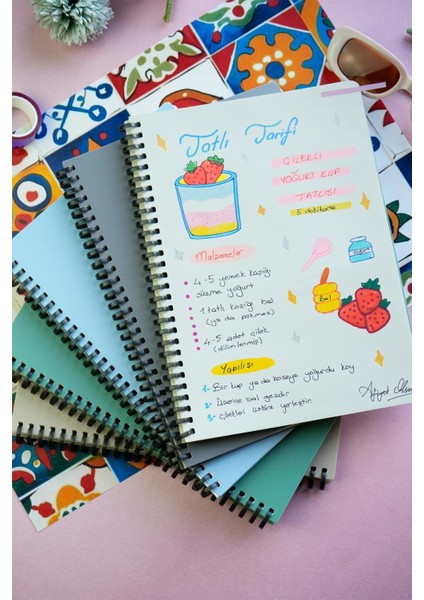 Tatlı Tarifi
ÇİLEKLİ
YOĞURT KUP
TATLISI
5 dakikada
Malzemeler
4-5 yemek kaşığı
süzme yoğurt
1 tatlı kaşığı bal
(ya da pekmez)
4-5 adet çilek
(dilimlenmiş)
bal
Yapılışı
1- Bir kup ya da kaseye yoğurdu koy
2- Üzerine bal gezdir
3- Çilekleri üstüne yerleştir.
Afiyet Olsun